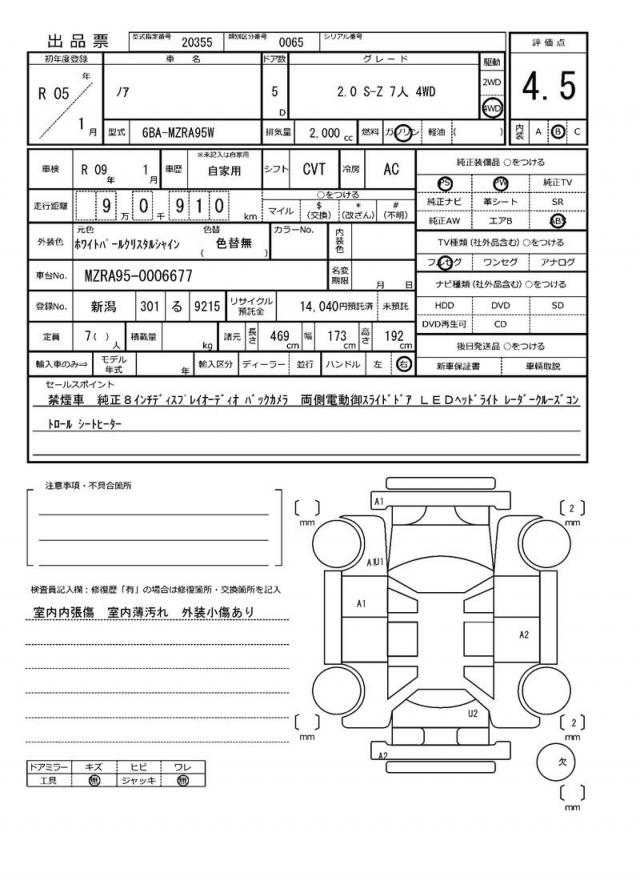 出品票 型式指定番号 20355 類別区分番号 0065 シリアル番号
初年度登録 車名 ドア数 グレード 駆動 評価点
R 05 年 1 月 ﾉｱ 5 D 2.0 S-Z 7人 4WD 2WD 4WD 4.5
型式 6BA-MZRA95W 排気量 2,000 cc 燃料 ガソリン 軽油 ( ) 内装 A B C
車検 R 09 年 1 月 車歴 ※未記入は自家用 自家用 シフト CVT 冷房 AC 純正装備品 ○をつける
PS PW 純正TV
走行距離 9 万 0 千 9 1 0 km ○をつける
マイル $ (交換) * (改ざん) # (不明)
純正ナビ 革シート SR
純正AW エアB ABS
外装色 元色 ﾎﾜｲﾄﾊﾟｰﾙｸﾘｽﾀﾙｼｬｲﾝ 色替 ( 色替無 ) カラーNo. 内装色
TV種類 (社外品含む) ○をつける
フルセグ ワンセグ アナログ
車台No. MZRA95-0006677 名変期限 月 日
ナビ種類 (社外品含む) ○をつける
登録No. 新潟 301 る 9215 リサイクル預託金 14,040円預託済 未預託
HDD DVD SD
DVD再生可 CD
定員 7( ) 人 積載量 kg 諸元 長さ 469 cm 幅 173 cm 高さ 192 cm
後日発送品 ○をつける
輸入車のみ⇒ モデル年式 年 輸入区分 ディーラー 並行 ハンドル 左 右 新車保証書 車輌取説
セールスポイント
禁煙車 純正８インチディスプレイオーディオ バックカメラ 両側電動御スライドドア ＬＥＤヘッドライト レーダークルーズコン
トロール シートヒーター
注意事項・不具合箇所
検査員記入欄：修復歴「有」の場合は修復箇所・交換箇所を記入
室内内張傷 室内薄汚れ 外装小傷あり
ドアミラー キズ ヒビ ワレ
工具 無 ジャッキ 無
A1
[ ] mm
[ 2 ] mm
A1U1
A1
A2
U2
[ ] mm
[ 2 ] mm
A2
欠
[ ] mm